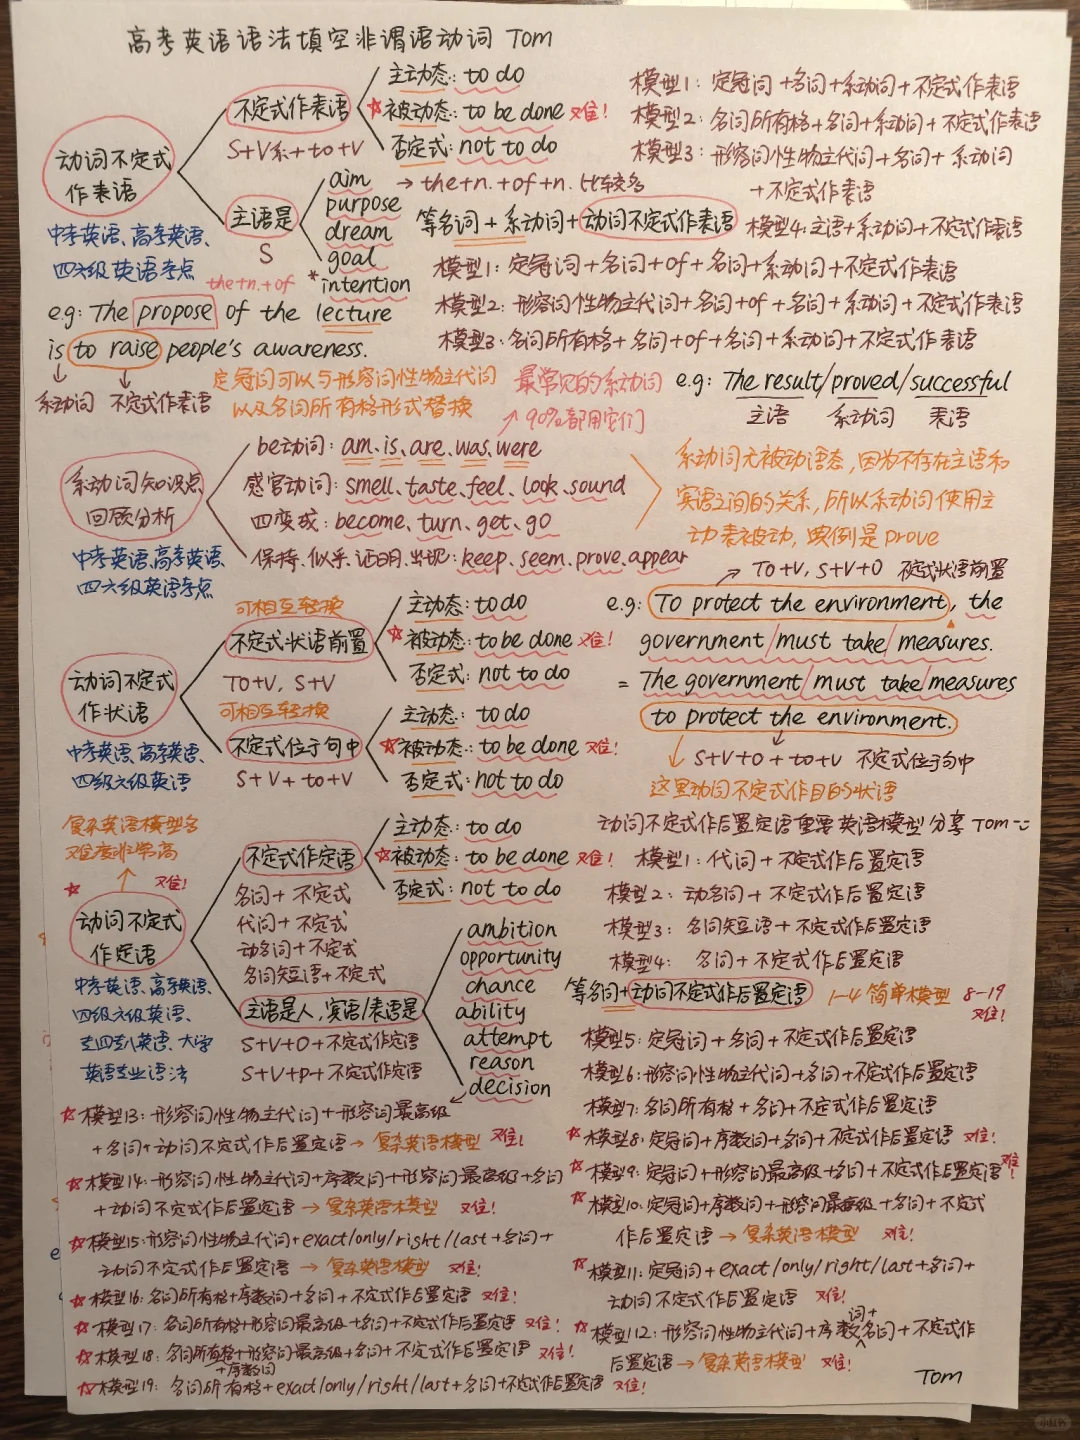 高考英语语法填空非谓语动词 Tom
动词不定式
作表语
中考英语、高考英语、
四六级英语考点
不定式作表语
S+V系+to+V
主动态: to do
☆被动态: to be done 难!
否定式: not to do
主语是
S
the+n.+of
aim
purpose
dream
goal
*intention
→ the+n.+of+n. 比较多
等名词+系动词+动词不定式作表语
模型1: 定冠词+名词+系动词+不定式作表语
模型2: 名词所有格+名词+系动词+不定式作表语
模型3: 形容词性物主代词+名词+系动词
+不定式作表语
模型4: 主语+系动词+不定式作表语
模型1: 定冠词+名词+of+名词+系动词+不定式作表语
模型2: 形容词性物主代词+名词+of+名词+系动词+不定式作表语
模型3: 名词所有格+名词+of+名词+系动词+不定式作表语
e.g: The propose of the lecture
is to raise people's awareness.
系动词 不定式作表语
定冠词可以与形容词性物主代词
以及名词所有格形式替换
最常见的系动词
↗90%都用它们
e.g: The result/proved/successful
主语 系动词 表语
系动词知识点
回顾分析
中考英语、高考英语、
四六级英语考点
be动词: am、is、are、was、were
感官动词: smell、taste、feel、look、sound
四变成: become、turn、get、go
保持、似乎、证明、出现: keep、seem、prove、appear
系动词无被动语态,因为不存在主语和
宾语之间的关系,所以系动词使用主
动表被动,典例是prove
动词不定式
作状语
中考英语、高考英语、
四级六级英语
可相互转换
不定式状语前置
TO+V, S+V
可相互转换
主动态: to do
☆被动态: to be done 难!
否定式: not to do
不定式位于句中
S+V+to+V
主动态: to do
☆被动态: to be done 难!
否定式: not to do
→ TO+V, S+V+O 不定式状语前置
e.g: To protect the environment, the
government/must take/measures.
= The government/must take/measures
to protect the environment.
S+V+O+to+V 不定式位于句中
这里动词不定式作目的状语
复杂英语模型多
难度非常高
☆ 难!
动词不定式
作定语
中考英语、高考英语、
四级六级英语、
专四专八英语、大学
英语专业语法
不定式作定语
主动态: to do
☆被动态: to be done 难!
否定式: not to do
名词+不定式
代词+不定式
动名词+不定式
名词短语+不定式
主语是人,宾语/表语是
S+V+O+不定式作定语
S+V+P+不定式作定语
ambition
opportunity
chance
ability
attempt
reason
decision
等名词+动词不定式作后置定语
动词不定式作后置定语重要英语模型分享 Tom
模型1: 代词+不定式作后置定语
模型2: 动名词+不定式作后置定语
模型3: 名词短语+不定式作后置定语
模型4: 名词+不定式作后置定语
1-4简单模型 8-19
难!
模型5: 定冠词+名词+不定式作后置定语
模型6: 形容词性物主代词+名词+不定式作后置定语
模型7: 名词所有格+名词+不定式作后置定语
☆模型8: 定冠词+序数词+名词+不定式作后置定语 难!
☆模型9: 定冠词+形容词最高级+名词+不定式作后置定语 难!
☆模型10: 定冠词+序数词+形容词最高级+名词+不定式
作后置定语→复杂英语模型 难!
☆模型11: 定冠词+exact/only/right/last+名词+
动词不定式作后置定语 难!
☆模型12: 形容词性物主代词+序数词+名词+不定式作
后置定语→复杂英语模型 难!
☆模型13: 形容词性物主代词+形容词最高级
+名词+动词不定式作后置定语→复杂英语模型 难!
☆模型14: 形容词性物主代词+序数词+形容词最高级+名词
+动词不定式作后置定语→复杂英语模型 难!
☆模型15: 形容词性物主代词+exact/only/right/last+名词+
动词不定式作后置定语→复杂英语模型 难!
☆模型16: 名词所有格+序数词+名词+不定式作后置定语 难!
☆模型17: 名词所有格+形容词最高级+名词+不定式作后置定语 难!
☆模型18: 名词所有格+形容词最高级+名词+不定式作后置定语 难!
+序数词
☆模型19: 名词所有格+exact/only/right/last+名词+不定式作后置定语 难!
Tom
小红书